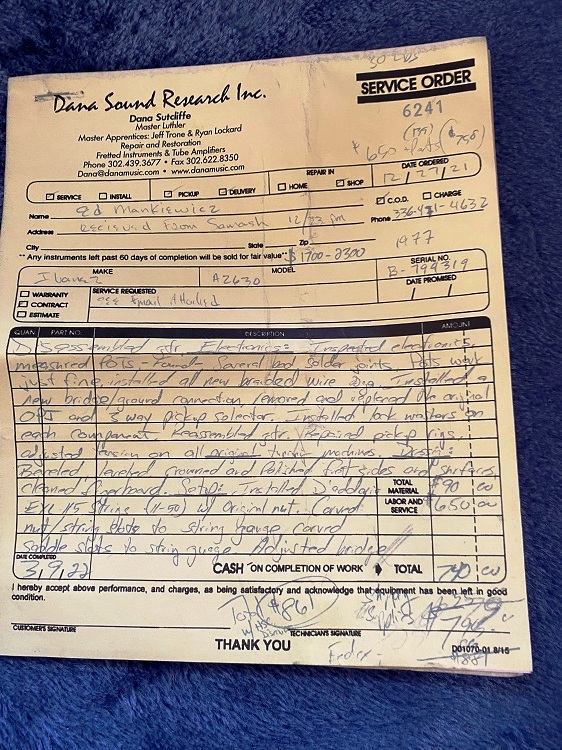 Dana Sound Research Inc.
Dana Sutcliffe
Master Luthier
Master Apprentices: Jeff Trone & Ryan Lockard
Repair and Restoration
Fretted Instruments & Tube Amplifiers
Phone 302.439.3677 • Fax 302.622.8350
Dana@danamusic.com • www.danamusic.com
SERVICE ORDER
6241
$650
DATE ORDERED
12/27/21
REPAIR IN
SERVICE INSTALL PICKUP DELIVERY HOME SHOP C.O.D. CHARGE
Name Ed Mankiewicz
Phone 336- -4632
Address Received from Samash 12/22 pm
City State Zip
1977
** Any instruments left past 60 days of completion will be sold for fair value** $1700-2300
MAKE MODEL SERIAL NO.
Ibanez A2630 B-799319
WARRANTY
CONTRACT
ESTIMATE
SERVICE REQUESTED
see Email Attached
DATE PROMISED
/ /
QUAN. PART NO. DESCRIPTION AMOUNT
Disassembled gtr. Electronics: Inspected electronics,
measured Pots - Found Several bad solder joints. Pots work
just fine, installed all new braided wire Installed a
new bridge/ground connection, removed and replaced the original
and 3 way pickup selector. Installed lock washers on
each component. Reassembled gtr. Repaired pickup rings,
adjusted tension on all original tuning machines.
Beveled leveled crowned and Polished fret sides and surfaces,
cleaned fingerboard. Setup: Installed D'addario
TOTAL MATERIAL $90 00
EXL 115 String (11-50) w/ original nut. Carved
LABOR AND SERVICE $650 00
nut/string slots to string gauge carved
saddle slots to string guage. Adjusted bridge
DATE COMPLETED
3,9,22
CASH ON COMPLETION OF WORK TOTAL 740 00
I hereby accept above performance, and charges, as being satisfactory and acknowledge that equipment has been left in good
condition.
Total $861
CUSTOMER'S SIGNATURE TECHNICIAN'S SIGNATURE
THANK YOU
Fedex -
D01070-01 8/15